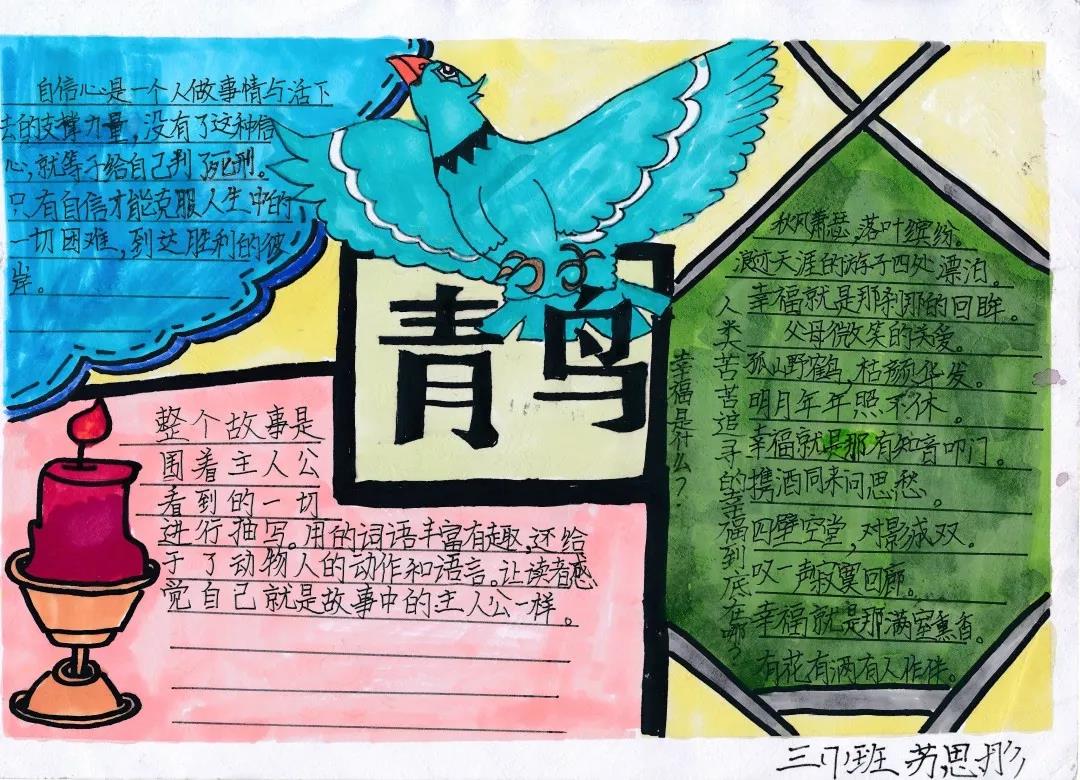 自信心是一个人做事情与活下
去的支撑力量，没有了这种信
心，就等于给自己判了死刑。
只有自信才能克服人生中的
一切困难，到达胜利的彼
岸。
青鸟
整个故事是
围着主人公
看到的一切
进行描写。用的词语丰富有趣，还给
于了动物人的动作和语言。让读者感
觉自己就是故事中的主人公一样。
幸福是什么？
人类苦苦追寻的幸福到底在哪？
秋风萧瑟，落叶缤纷。
浪迹天涯的游子四处漂泊。
幸福就是那刹那的回眸。
父母微笑的关爱。
孤山野鹤，枯颜华发。
明月年年照不休
幸福就是那有知音叩门。
携酒同来问思愁。
四壁空堂，对影成双。
叹一声寂寞回廊。
幸福就是那满室熏香。
有花有酒有人作伴。
三（7）班 苏思彤